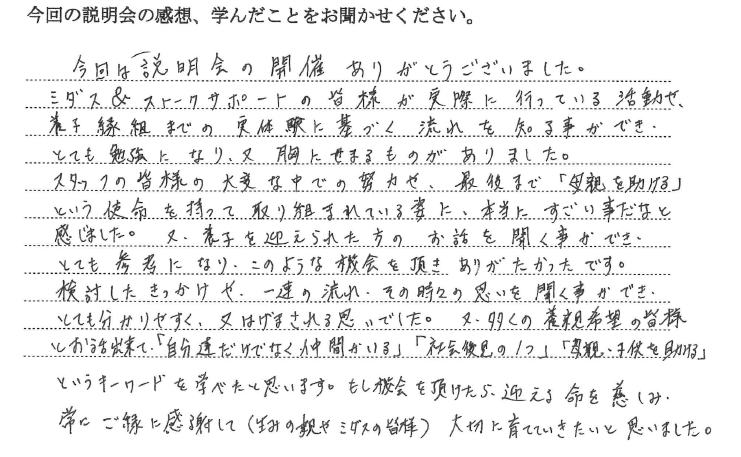 今回の説明会の感想、学んだことをお聞かせください。
今回は説明会の開催ありがとうございました。
ミダス&ストークサポートの皆様が実際に行っている活動や、
養子縁組までの実体験に基づく流れを知る事ができ、
とても勉強になり、又胸にせまるものがありました。
スタッフの皆様の大変な中での努力や、最後まで「母親を助ける」
という使命を持って取り組まれている姿に、本当にすごい事だなと
感じました。又、養子を迎えられた方のお話を聞く事ができ、
とても参考になり、このような機会を頂きありがたかったです。
検討したきっかけや、一連の流れ、その時々の思いを聞く事ができ、
とても分かりやすく、又はげまされる思いでした。又、多くの養親希望の皆様
とお話出来て、「自分達だけでなく仲間がいる」「社会後見の1つ」「母親・子供を助ける」
というキーワードを学べたと思います。もし機会を頂けたら、迎える命を慈しみ、
常にご縁に感謝して(生みの親やミダスの皆様)大切に育てていきたいと思いました。